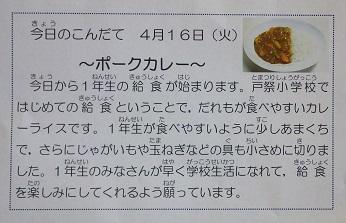 今日のこんだて　4月16日（火）
～ポークカレー～
今日から1年生の給食が始まります。戸祭小学校で
はじめての給食ということで、だれもが食べやすいカレ
ーライスです。1年生が食べやすいように少しあまくち
で、さらにじゃがいもや玉ねぎなどの具も小さめに切りま
した。1年生のみなさんが早く学校生活になれて、給食
を楽しみにしてくれるよう願っています。